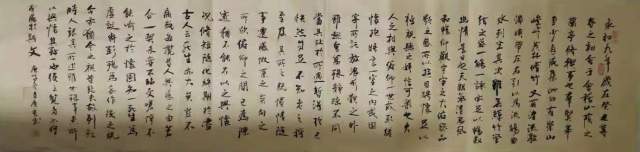 永和九年歲在癸丑暮
春之初會于會稽山陰之
蘭亭脩稧事也羣賢畢
至少長咸集此地有崇山
峻領茂林脩竹又有清流激
湍暎帶左右引以為流觴曲
水列坐其次雖無絲竹管
弦之盛一觴一詠亦足以暢敘
幽情是日也天朗氣清惠風
和暢仰觀宇宙之大俯察品
類之盛所以遊目騁懷足以
極視聽之娛信可樂也夫
人之相與俯仰一世或取諸
懷抱悟言一室之內或因
寄所託放浪形骸之外
雖趣舍萬殊靜躁不同
當其欣於所遇暫得於己
快然自足不知老之將
至及其所之既惓情隨
事遷感慨係之矣向之
所欣俛仰之間已為陳
迹猶不能不以之興懷
況脩短隨化終期於盡
古人云死生亦大矣豈不
痛哉每攬昔人興感之由若
合一契未嘗不臨文嗟悼不
能喻之於懷固知一死生為
虛誕齊彭殤為妄作後之視
今亦猶今之視昔悲夫故列敘
時人錄其所述雖世殊事異所
以興懷其致一也後之覽者亦
將有感於斯文